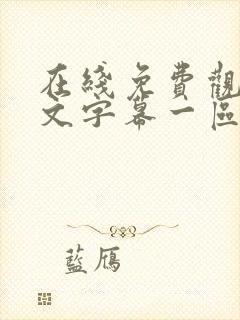 在綫免費觀
文字幕一區
藍鴈